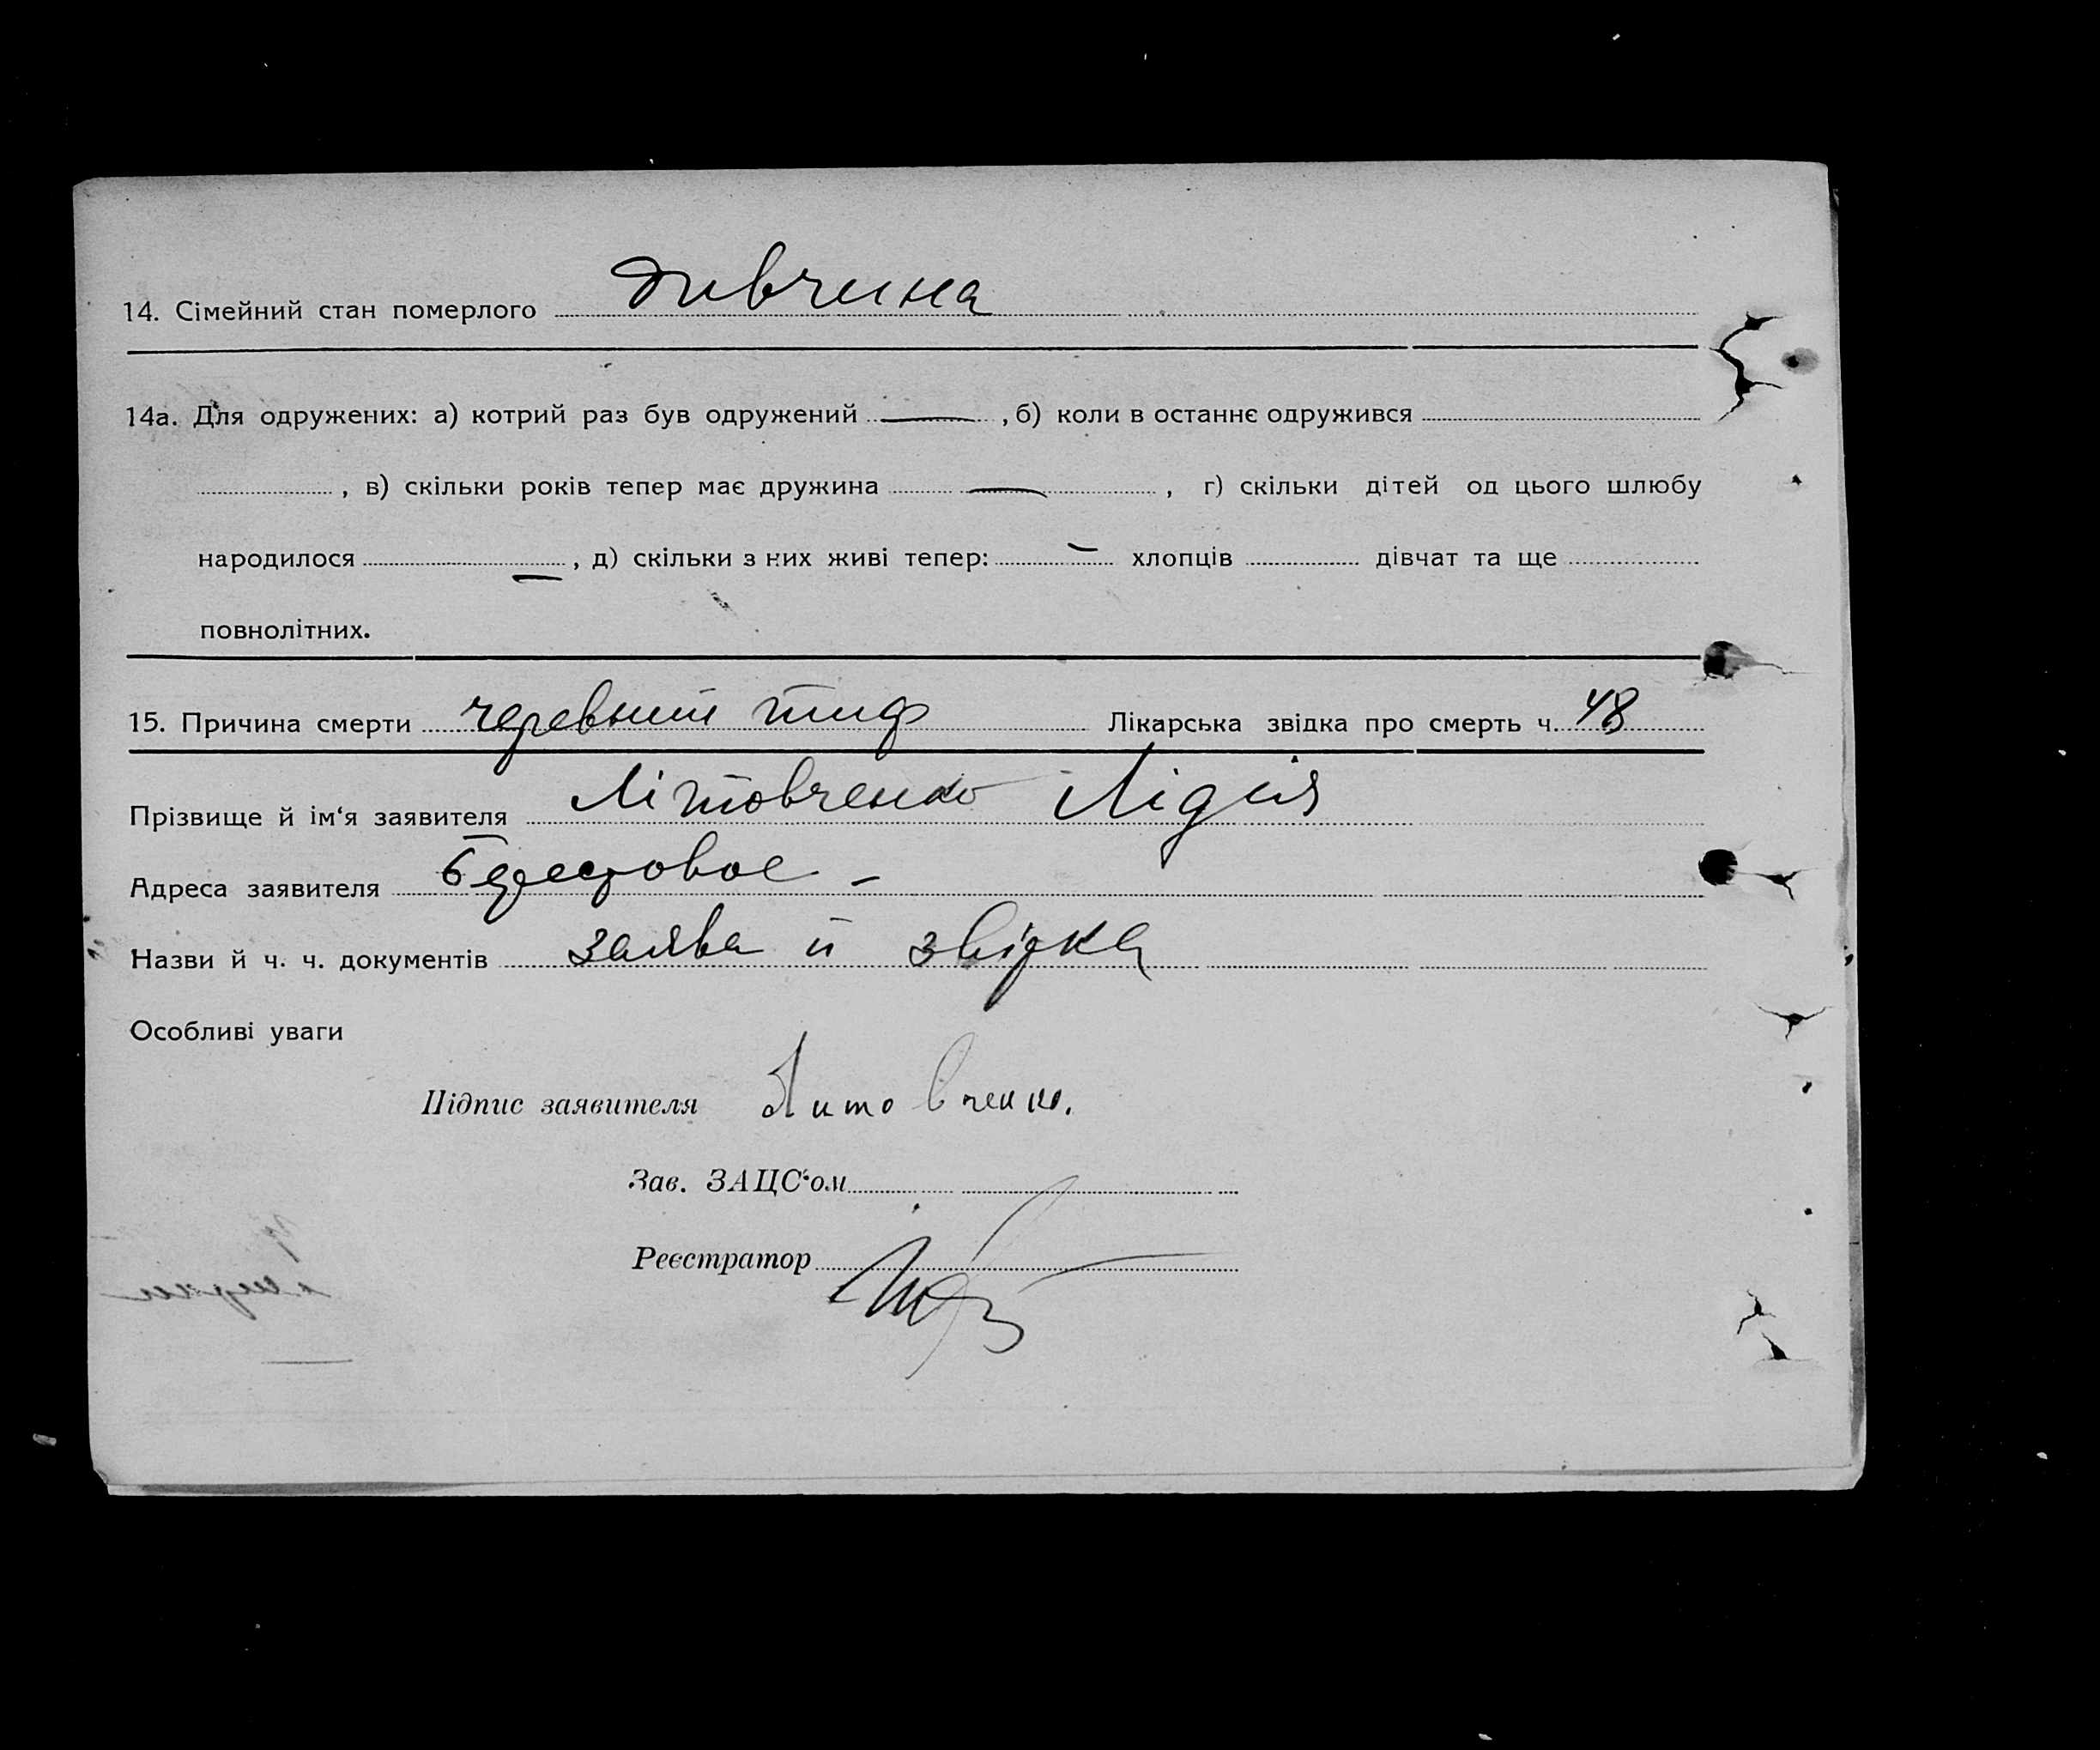 14. Сімейний стан померлого дивчина
14а. Для одружених: а) котрий раз був одружений — , б) коли в останнє одружився
, в) скільки років тепер має дружина — , г) скільки дітей од цього шлюбу
народилося — , д) скільки з них живі тепер: — хлопців дівчат та ще
повнолітних.
15. Причина смерти черевний тиф Лікарська звідка про смерть ч. 48
Прізвище й ім'я заявителя Літовченко Лідия
Адреса заявителя Берестовое –
Назви й ч. ч. документів заява й звідка
Особливі уваги
Підпис заявителя Литовченко.
Зав. ЗАЦС'ом
Реєстратор